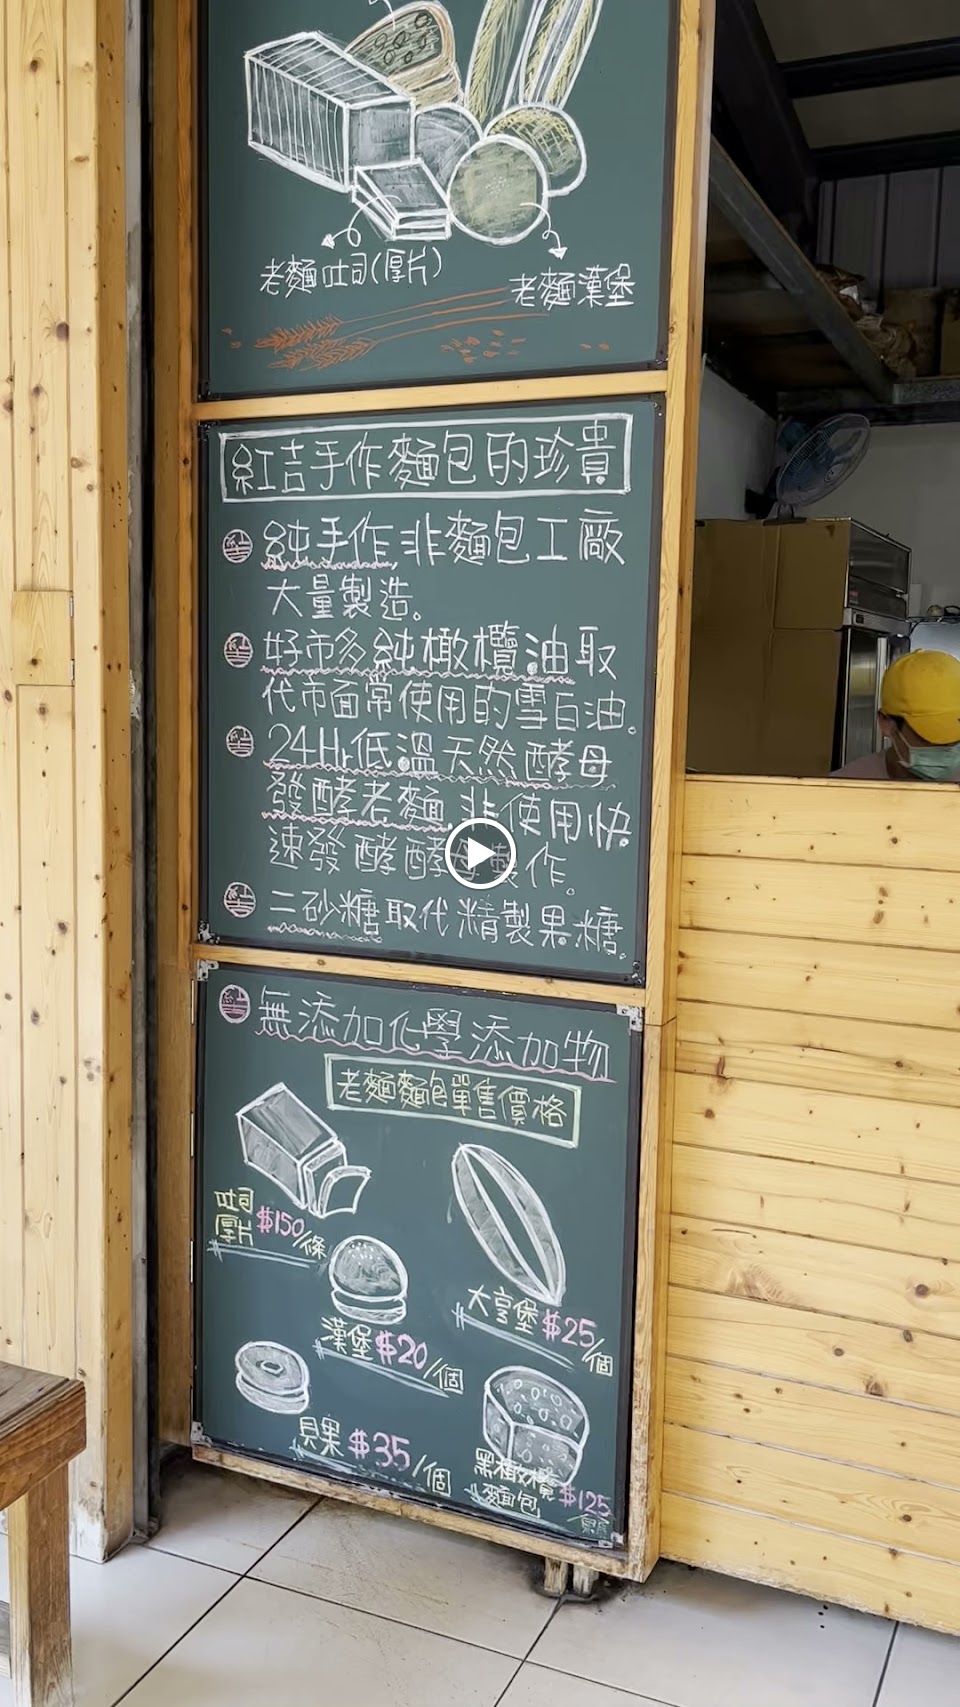 老麵吐司(厚片)
老麵漢堡
紅吉手作麵包的珍貴
純手作,非麵包工廠
大量製造。
好市多純橄欖油取
代市面常使用的雪白油。
24Hr低溫天然酵母
發酵老麵,非使用快
速發酵酵母製作。
二砂糖取代精製果糖。
無添加化學添加物
老麵麵包單售價格
吐司
厚片 $150/條
大亨堡 $25/個
漢堡 $20/個
貝果 $35/個
黑橄欖
麵包 $125